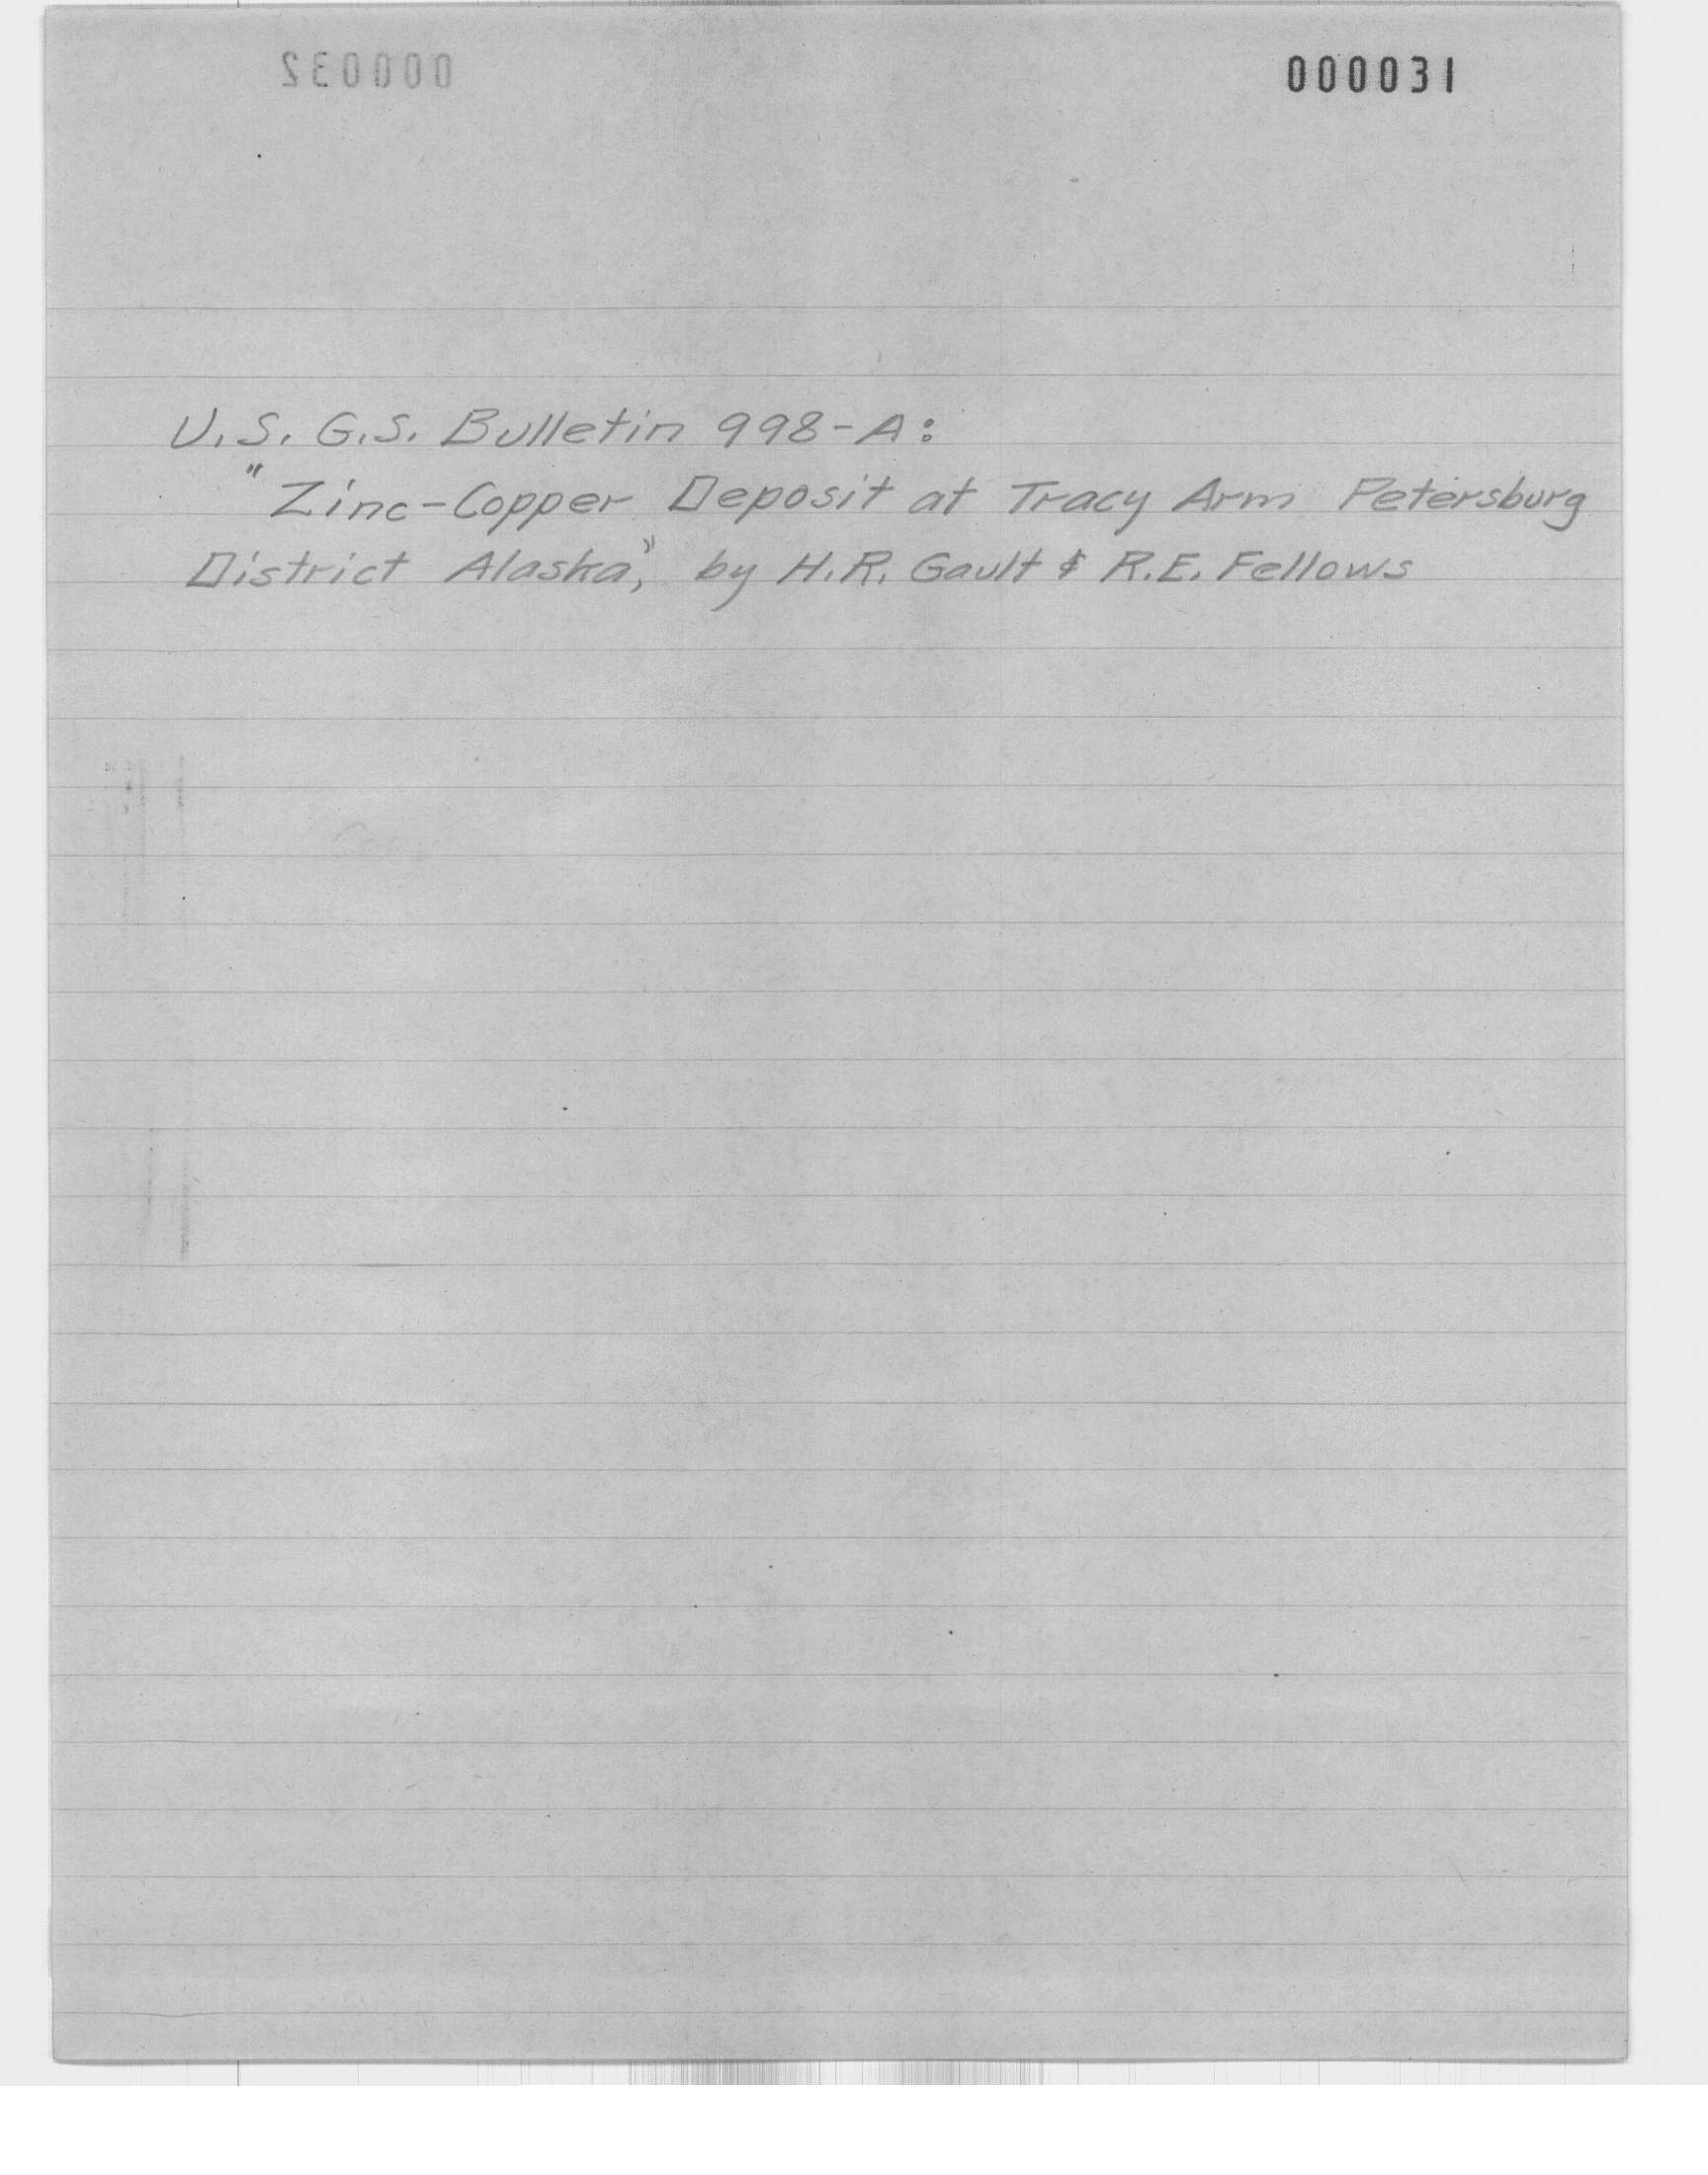 000032 000031
U.S. G.S. Bulletin 998-A:
"Zinc-Copper Deposit at Tracy Arm Petersburg
District Alaska", by H.R. Gault & R.E. Fellows